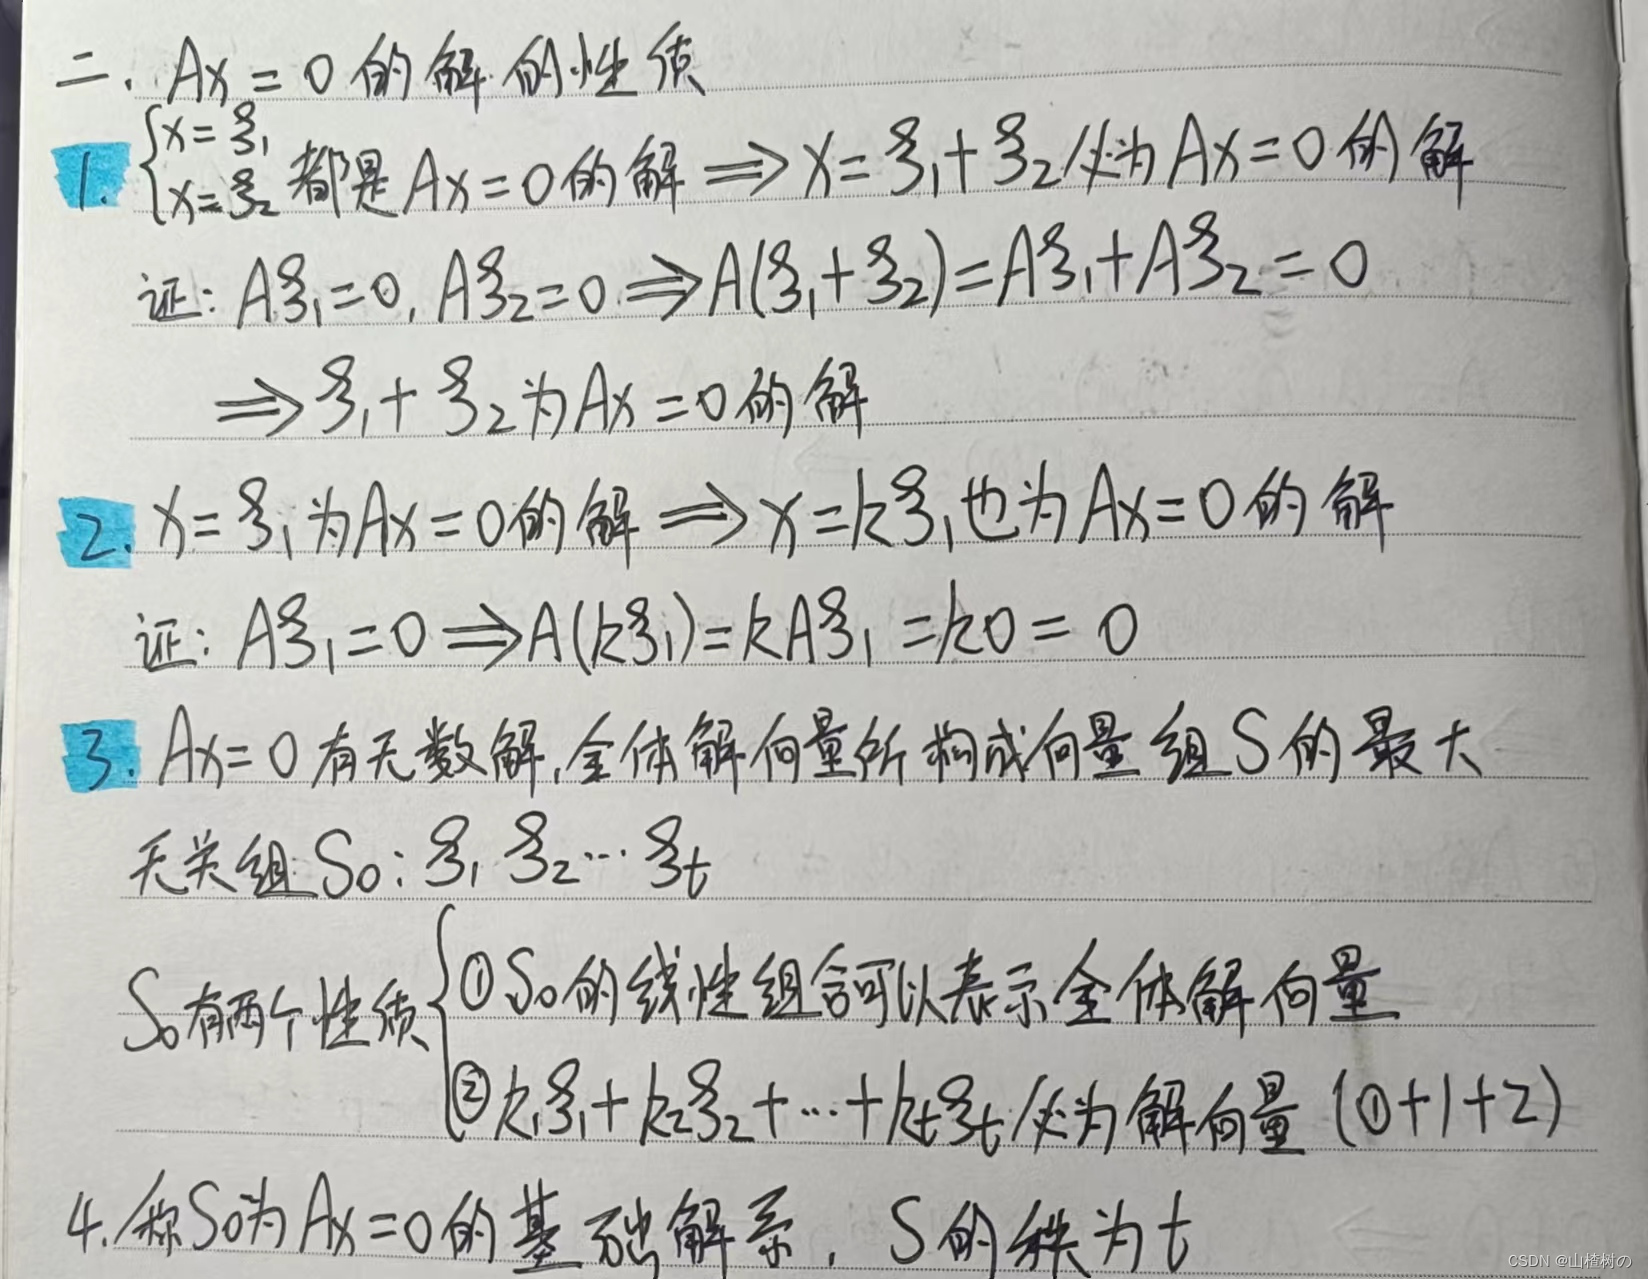 二. Ax=0的解的性质
1. {x=ξ₁ x=ξ₂ 都是Ax=0的解 ⟹ x=ξ₁+ξ₂必为Ax=0的解
证: Aξ₁=0, Aξ₂=0 ⟹ A(ξ₁+ξ₂)=Aξ₁+Aξ₂=0
⟹ ξ₁+ξ₂为Ax=0的解
2. x=ξ₁为Ax=0的解 ⟹ x=kξ₁也为Ax=0的解
证: Aξ₁=0 ⟹ A(kξ₁)=kAξ₁=k0=0
3. Ax=0有无数解,全体解向量所构成向量组S的最大
无关组S₀: ξ₁ ξ₂…ξₜ
S₀有两个性质 {①S₀的线性组合可以表示全体解向量
②k₁ξ₁+k₂ξ₂+…+kₜξₜ必为解向量 (①+1+2)
4. 称S₀为Ax=0的基础解系, S的秩为t
CSDN @山楂树の